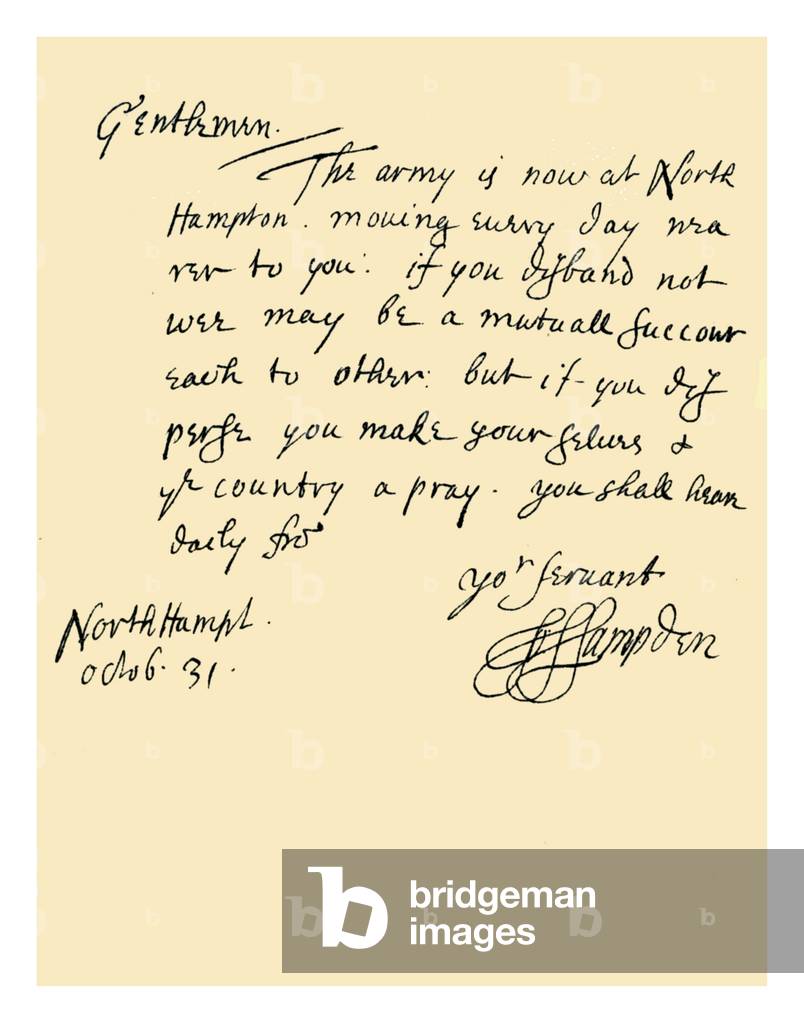 Gentlemen.
The army is now at North
Hampton. mouing euery day nea
rer to you: if you disband not
wee may be a mutuall succour
each to other: but if you dis
perse you make your selues &
yr country a pray. you shall heare
daily frō
yor seruant
Hampden
NorthHampt.
octob. 31.
bridgeman
images